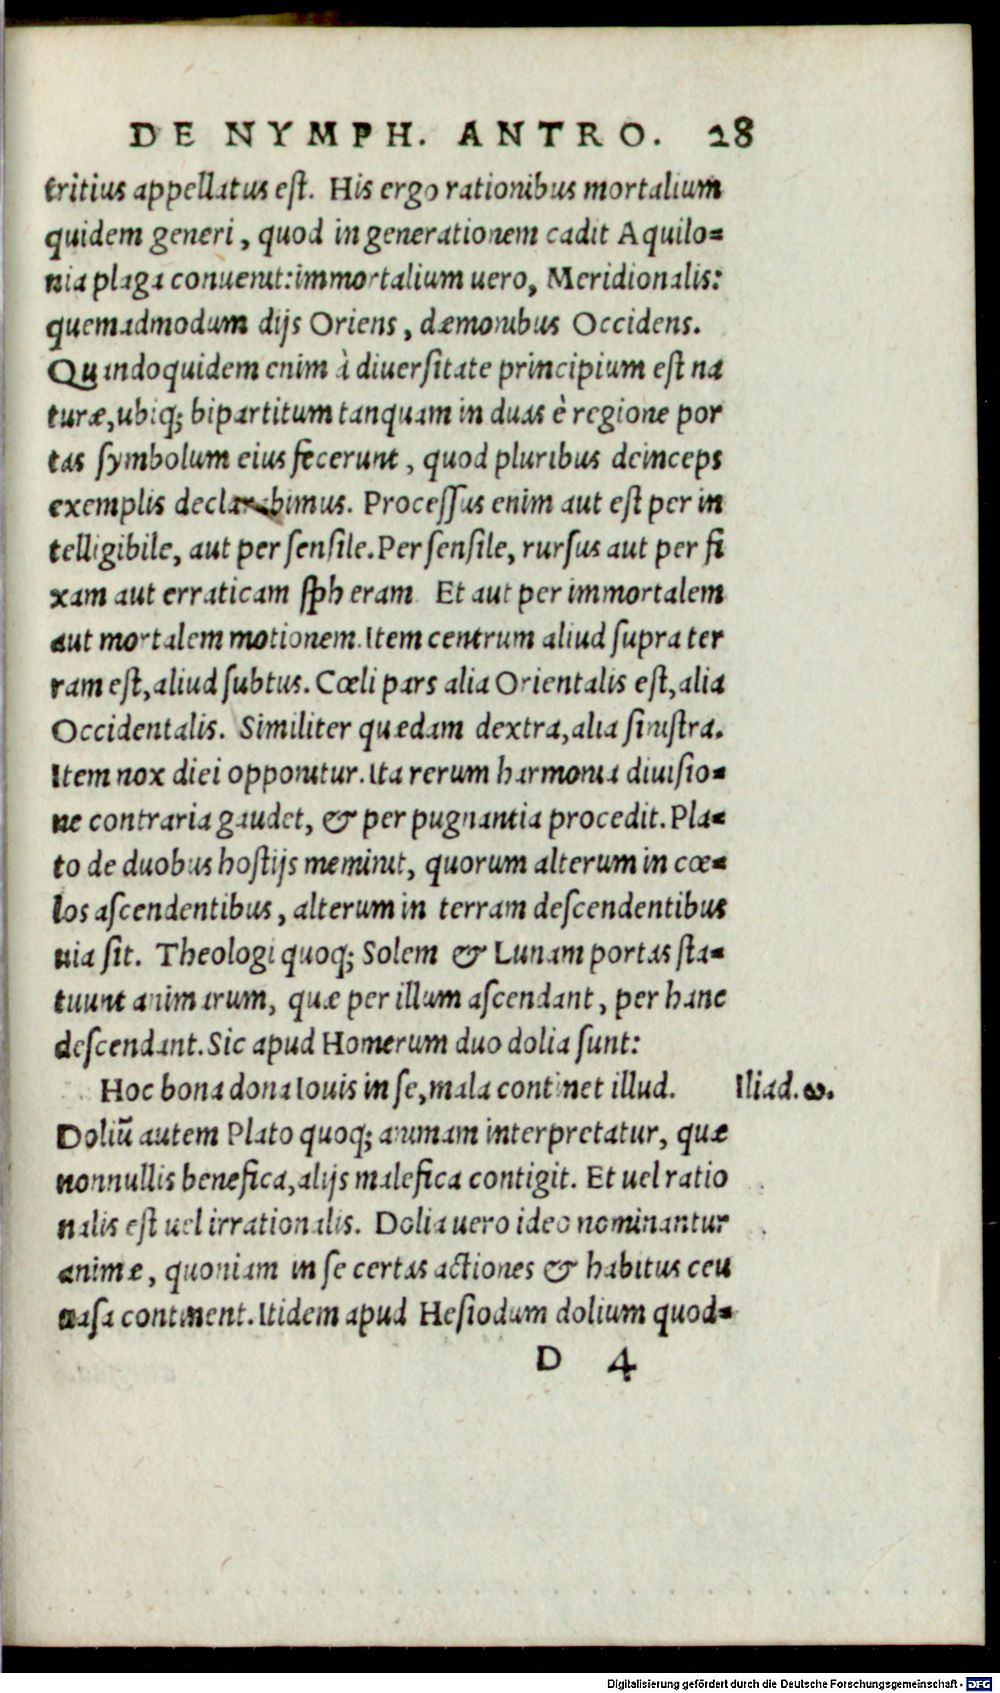 DE NYMPH. ANTRO. 28
tritius appellatus eſt. His ergo rationibus mortalium
quidem generi, quod in generationem cadit Aquilo=
nia plaga conuenit: immortalium uero, Meridionalis:
quemadmodum dijs Oriens, dæmonibus Occidens.
Quandoquidem enim à diuerſitate principium eſt na
turæ, ubiq; bipartitum tanquam in duas è regione por
tas ſymbolum eius fecerunt, quod pluribus deinceps
exemplis declarabimus. Proceſſus enim aut eſt per in
telligibile, aut per ſenſile. Per ſenſile, rurſus aut per fi
xam aut erraticam ſpheram. Et aut per immortalem
aut mortalem motionem. Item centrum aliud ſupra ter
ram eſt, aliud ſubtus. Cœli pars alia Orientalis eſt, alia
Occidentalis. Similiter quædam dextra, alia ſiniſtra.
Item nox diei opponitur. Ita rerum harmonia diuiſio=
ne contraria gaudet, & per pugnantia procedit. Pla=
to de duobus hoſtijs meminit, quorum alterum in cœ=
los aſcendentibus, alterum in terram deſcendentibus
uia ſit. Theologi quoq; Solem & Lunam portas ſta=
tuunt animarum, quæ per illum aſcendant, per hanc
deſcendant. Sic apud Homerum duo dolia ſunt:
Hoc bona dona Iouis in ſe, mala continet illud. Iliad. ω.
Doliū autem Plato quoq; animam interpretatur, quæ
nonnullis benefica, alijs malefica contigit. Et uel ratio
nalis eſt uel irrationalis. Dolia uero ideo nominantur
animæ, quoniam in ſe certas actiones & habitus ceu
uaſa continent. Itidem apud Heſiodum dolium quod=
D 4
Digitalisierung gefördert durch die Deutsche Forschungsgemeinschaft - DFG